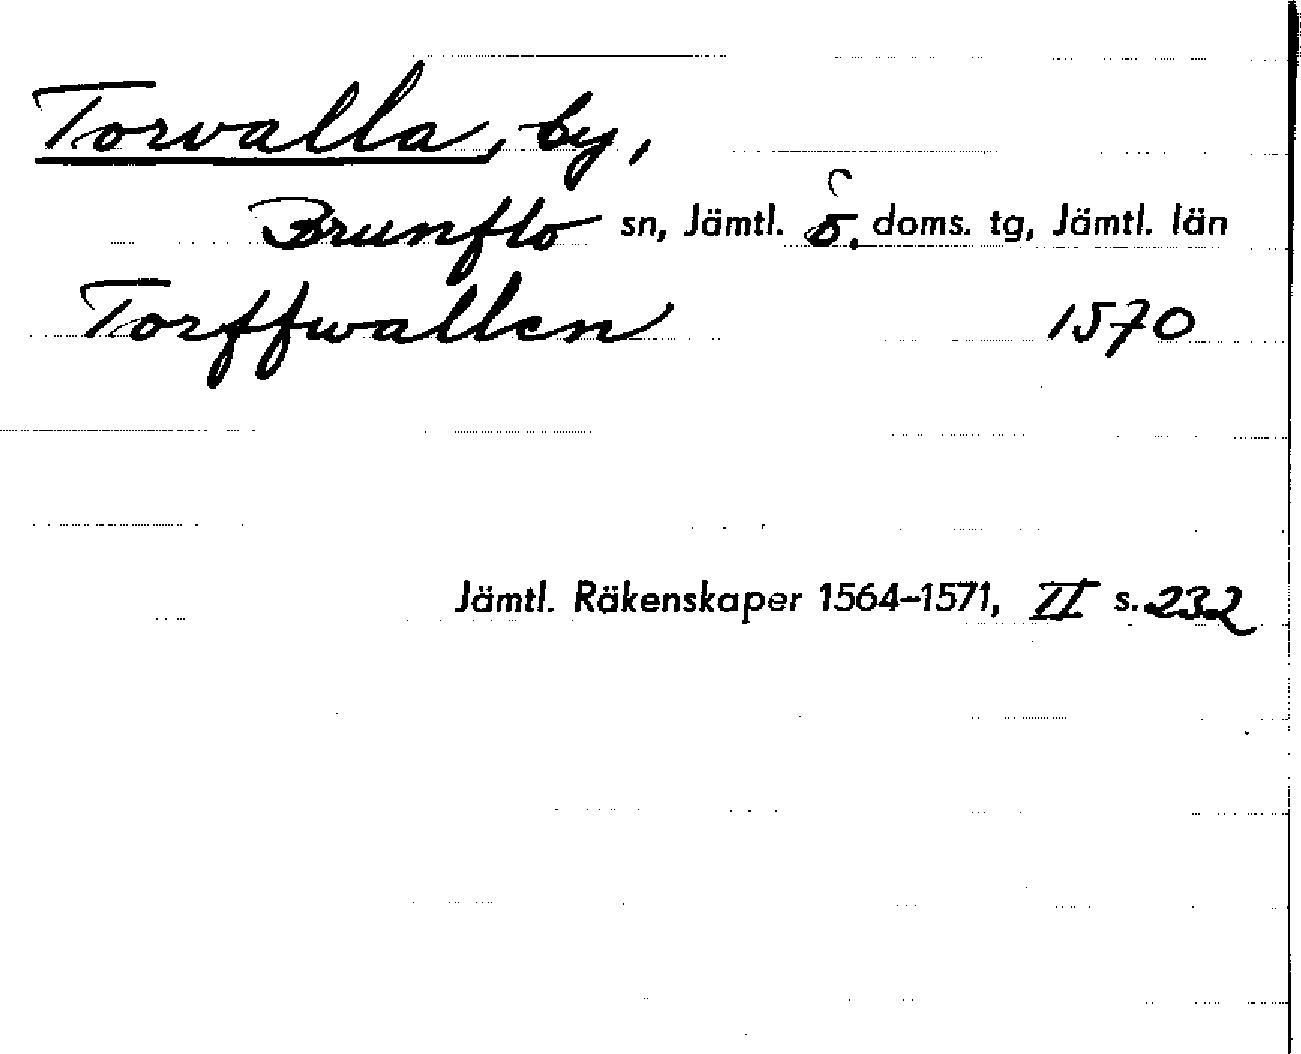 Torvalla, by,
Brunflo sn, Jämtl. ö. doms. tg, Jämtl. län
Torffwallen 1570
Jämtl. Räkenskaper 1564–1571, II s. 232